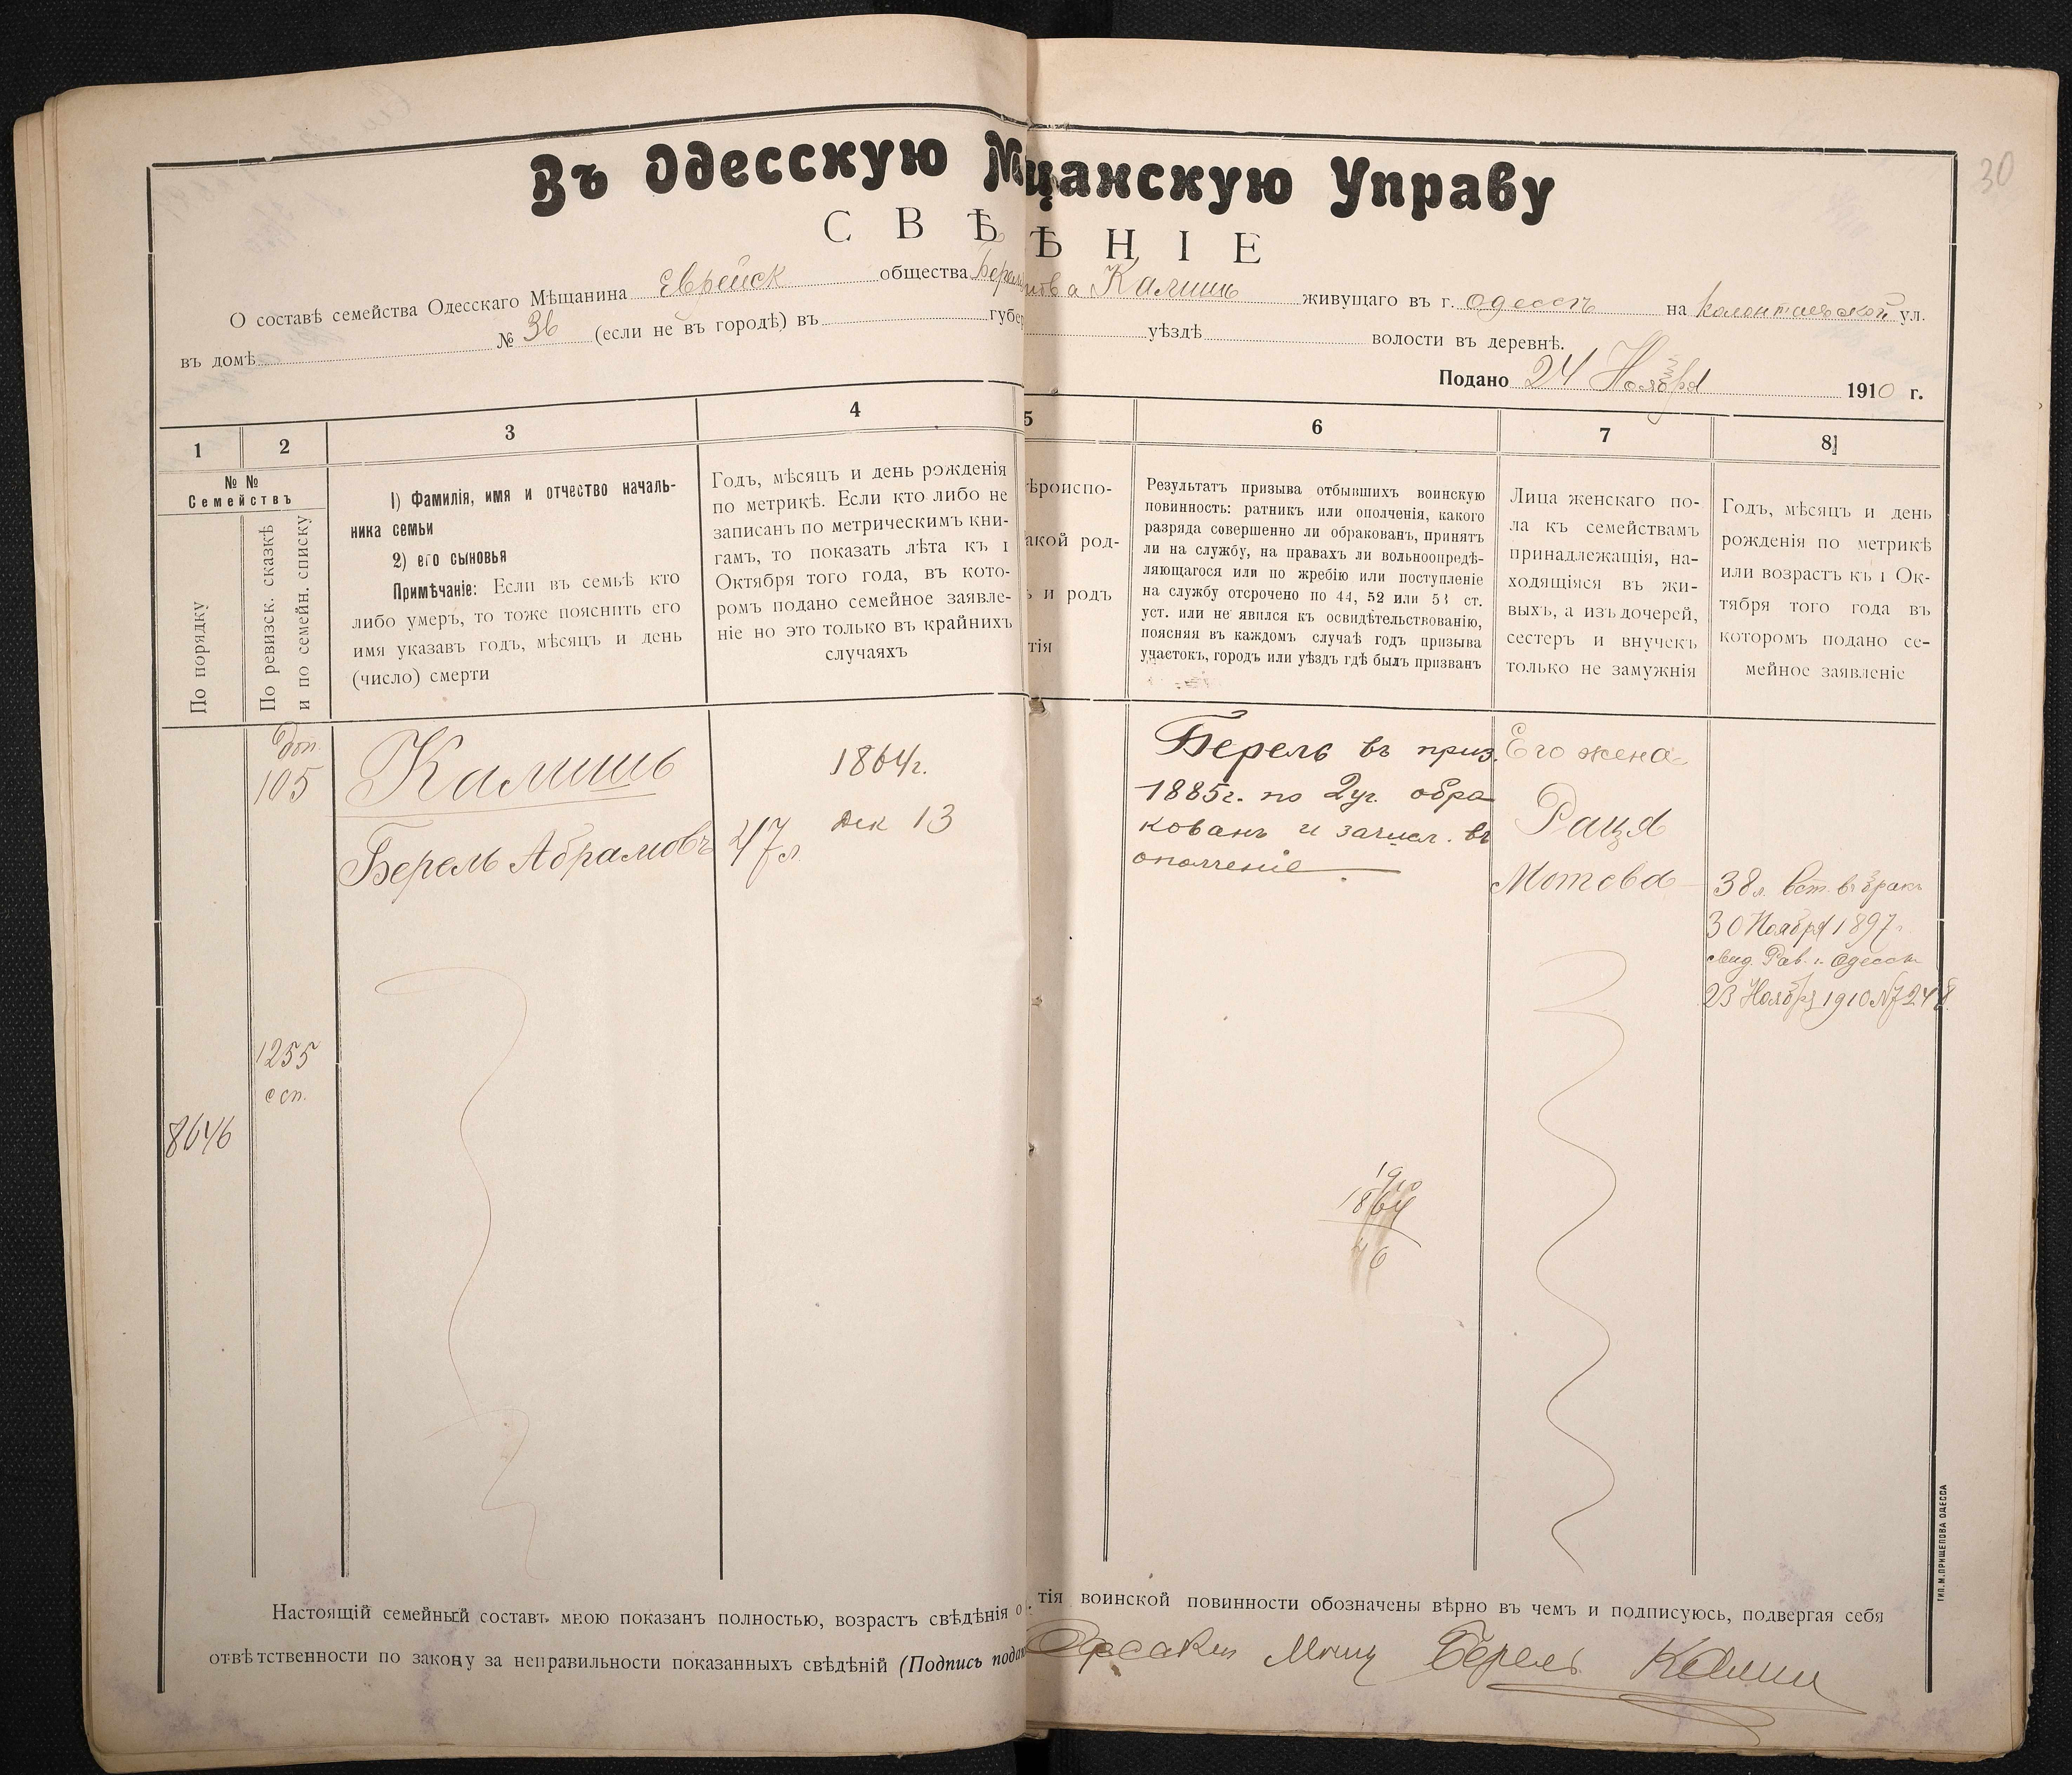 30
Въ Одесскую М щанскую Управу
СВѢ ѢНІЕ
О составѣ семейства Одесскаго Мѣщанина Еврейск общества Берель ова Калишъ живущаго въ г. Одессѣ на Колонтаевской ул.
въ домѣ № 36 (если не въ городѣ) въ губер уѣздѣ волости въ деревнѣ.
Подано 24 Ноября 1910 г.
1 2 3 4 5 6 7 8
№ №
Семействъ
По порядку
По ревизск. сказкѣ
и по семейн. списку
1) Фамилія, имя и отчество началь-
ника семьи
2) его сыновья
Примѣчаніе: Если въ семьѣ кто
либо умеръ, то тоже пояснить его
имя указавъ годъ, мѣсяцъ и день
(число) смерти
Годъ, мѣсяцъ и день рожденія
по метрикѣ. Если кто либо не
записанъ по метрическимъ кни-
гамъ, то показать лѣта къ 1
Октября того года, въ кото-
ромъ подано семейное заявле-
ніе но это только въ крайнихъ
случаяхъ
ѣроиспо-
акой род-
ъ и родъ
тія
Результатъ призыва отбывшихъ воинскую
повинность: ратникъ или ополченія, какого
разряда совершенно ли обракованъ, принятъ
ли на службу, на правахъ ли вольноопредѣ-
ляющагося или по жребію или поступленіе
на службу отсрочено по 44, 52 или 53 ст.
уст. или не явился къ освидѣтельствованію,
поясняя въ каждомъ случаѣ годъ призыва
участокъ, городъ или уѣздъ гдѣ былъ призванъ
Лица женскаго по-
ла къ семействамъ
принадлежащія, на-
ходящіяся въ жи-
выхъ, а изъ дочерей,
сестеръ и внучекъ
только не замужнія
Годъ, мѣсяцъ и день
рожденія по метрикѣ
или возрастъ къ 1 Ок-
тября того года въ
которомъ подано се-
мейное заявленіе
доп.
105
1255
8646
Калишъ
Берель Абрамовъ
47 л.
1864 г.
Дек 13
Берель въ приз.
1885 г. по 2 уч. обра
кованъ и зачисл. въ
ополченіе
1910
1864
46
Его жена
Рация
Мотева
38 л. Вст. въ бракъ
30 Ноября 1897 г.
свид. Рав. г. Одессы
23 Ноября 1910 №
Настоящій семейный составъ мною показанъ полностью, возрастъ свѣдѣнія о тія воинской повинности обозначены вѣрно въ чемъ и подписуюсь, подвергая себя
отвѣтственности по закону за неправильности показанныхъ свѣдѣній (Подпись подав Берель Калиш
ТИП. М. ПРИЩЕПОВА ОДЕССА